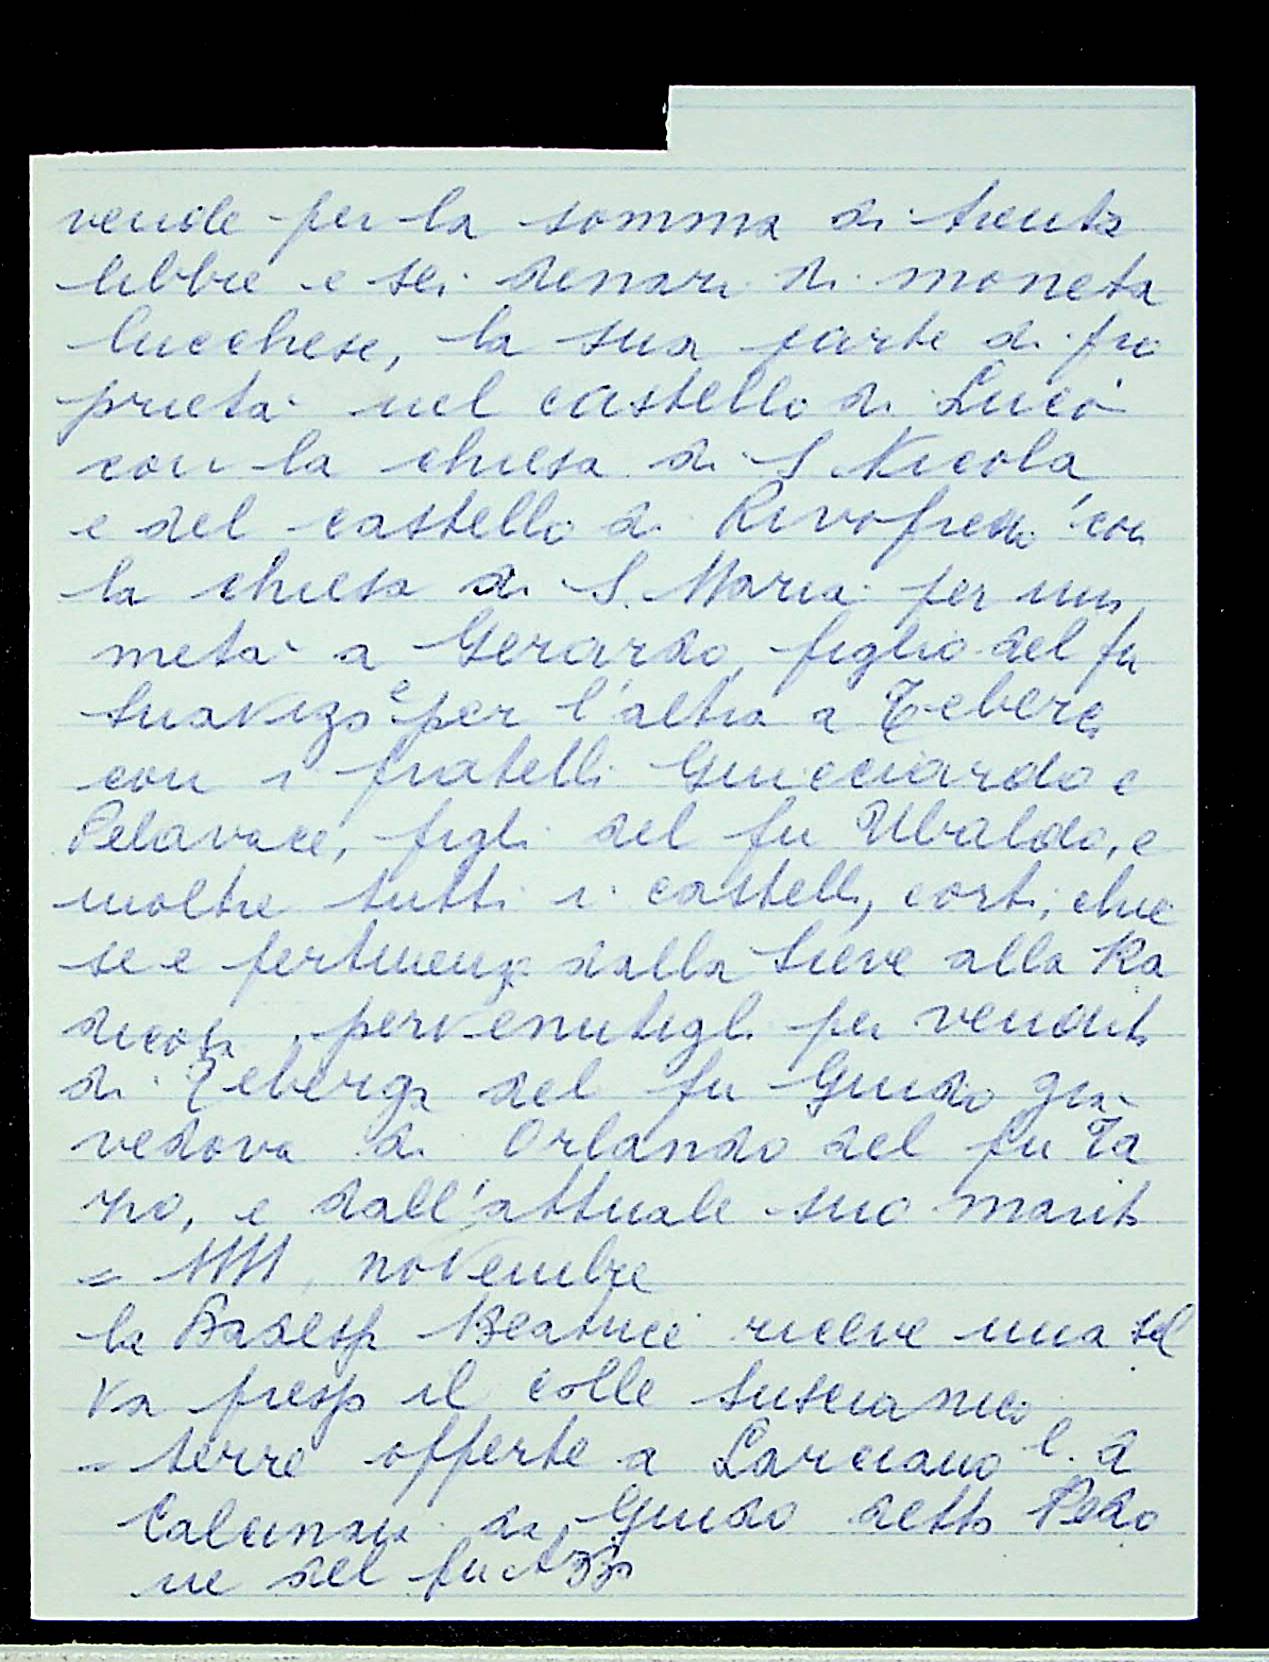 vende per la somma di trenta
libbre e sei denari di moneta
lucchese, la sua parte di pro
prietà nel castello di Luco
con la chiesa di S. Nicola
e del castello di Rivofreddo con
la chiesa di S. Maria per una
metà a Gerardo, figlio del fu
Suavizo e per l'altra a Teberga
con i fratelli Guicciardo e
Pelavace, figli del fu Ubaldo, e
inoltre tutti i castelli, corti, chie
se e pertinenze dalla Sieve alla Ra
dicosa, pervenutigli per vendita
di Teberga del fu Guido già
vedova di Orlando del fu Ta
, e dall'attuale suo marito
= 1111, novembre
la Badessa Beatrice riceve una sel
va presso il colle
= terre offerte a Larciano e a
da Guido detto Pedo
ne del fu Azzo